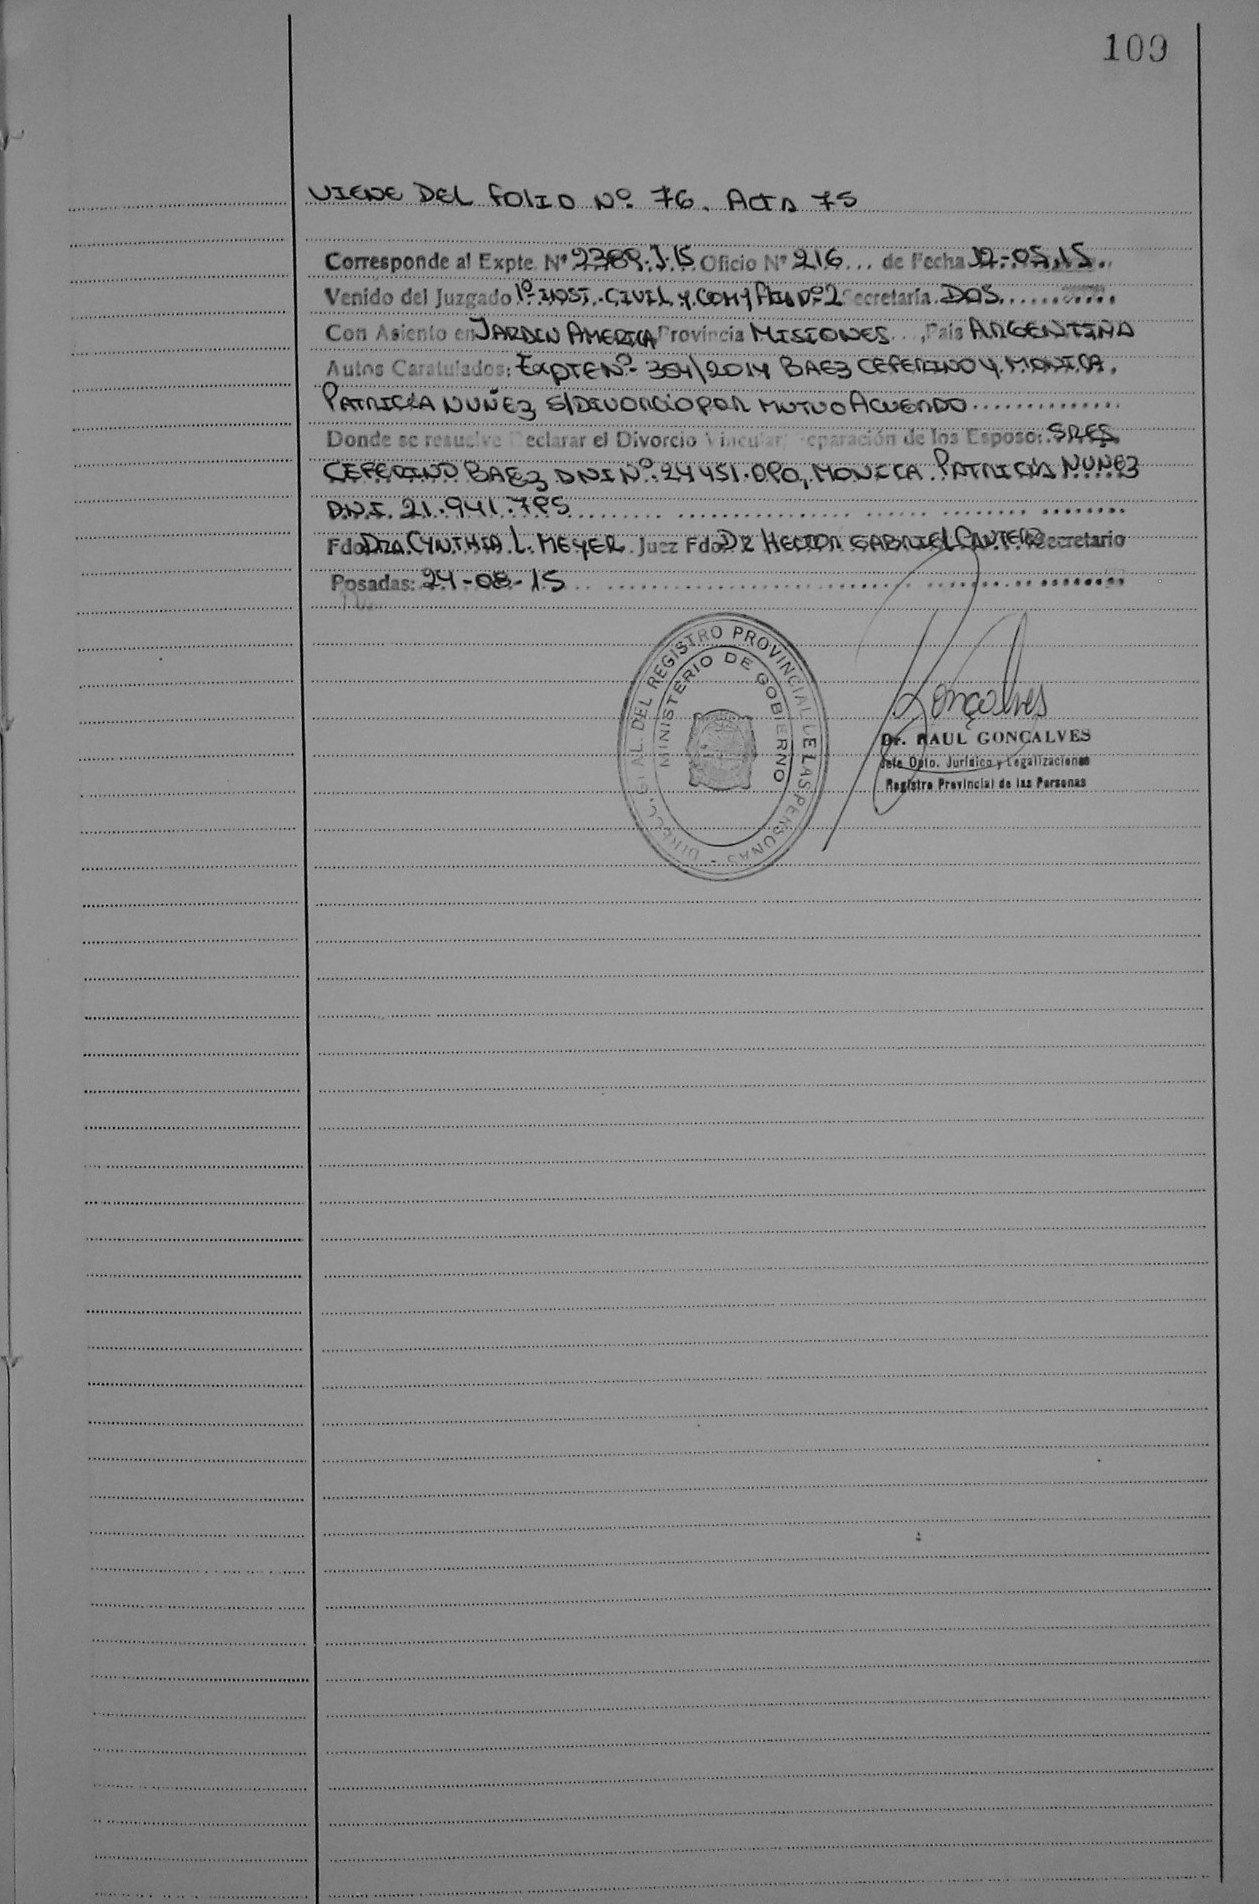 109
VIENE DEL FOLIO Nº 76. Acta 75
Corresponde al Expte. Nº 2389.J.15. Oficio Nº 216... de Fecha 12-05.15.
Venido del Juzgado 1º INST. CIVIL Y COM Nº 2 Secretaría DOS
Con Asiento en JARDIN AMERICA Provincia MISIONES, País ARGENTINA
Autos Caratulados: Expte Nº 364/2014 BAEZ CEFERINO Y MONICA
PATRICIA NUÑEZ S/DIVORCIO POR MUTUO ACUERDO
Donde se resuelve Declarar el Divorcio Vincular Separación de los Esposos: SRES
CEFERINO BAEZ DNI Nº 24 451. MONICA PATRICIA NUÑEZ
D.N.I. 21.941.
Fdo DRA. CYNTHIA L. MEYER. Juez Fdo DR HECTOR GABRIEL CANTERO Secretario
Posadas: 24-08-15
DIRECC. GRAL DEL REGISTRO PROVINCIAL DE LAS PERSONAS -
MINISTERIO DE GOBIERNO
Gonçalves
Dr. RAUL GONÇALVES
Jefe Dpto. Jurídico y Legalizaciones
Registro Provincial de las Personas